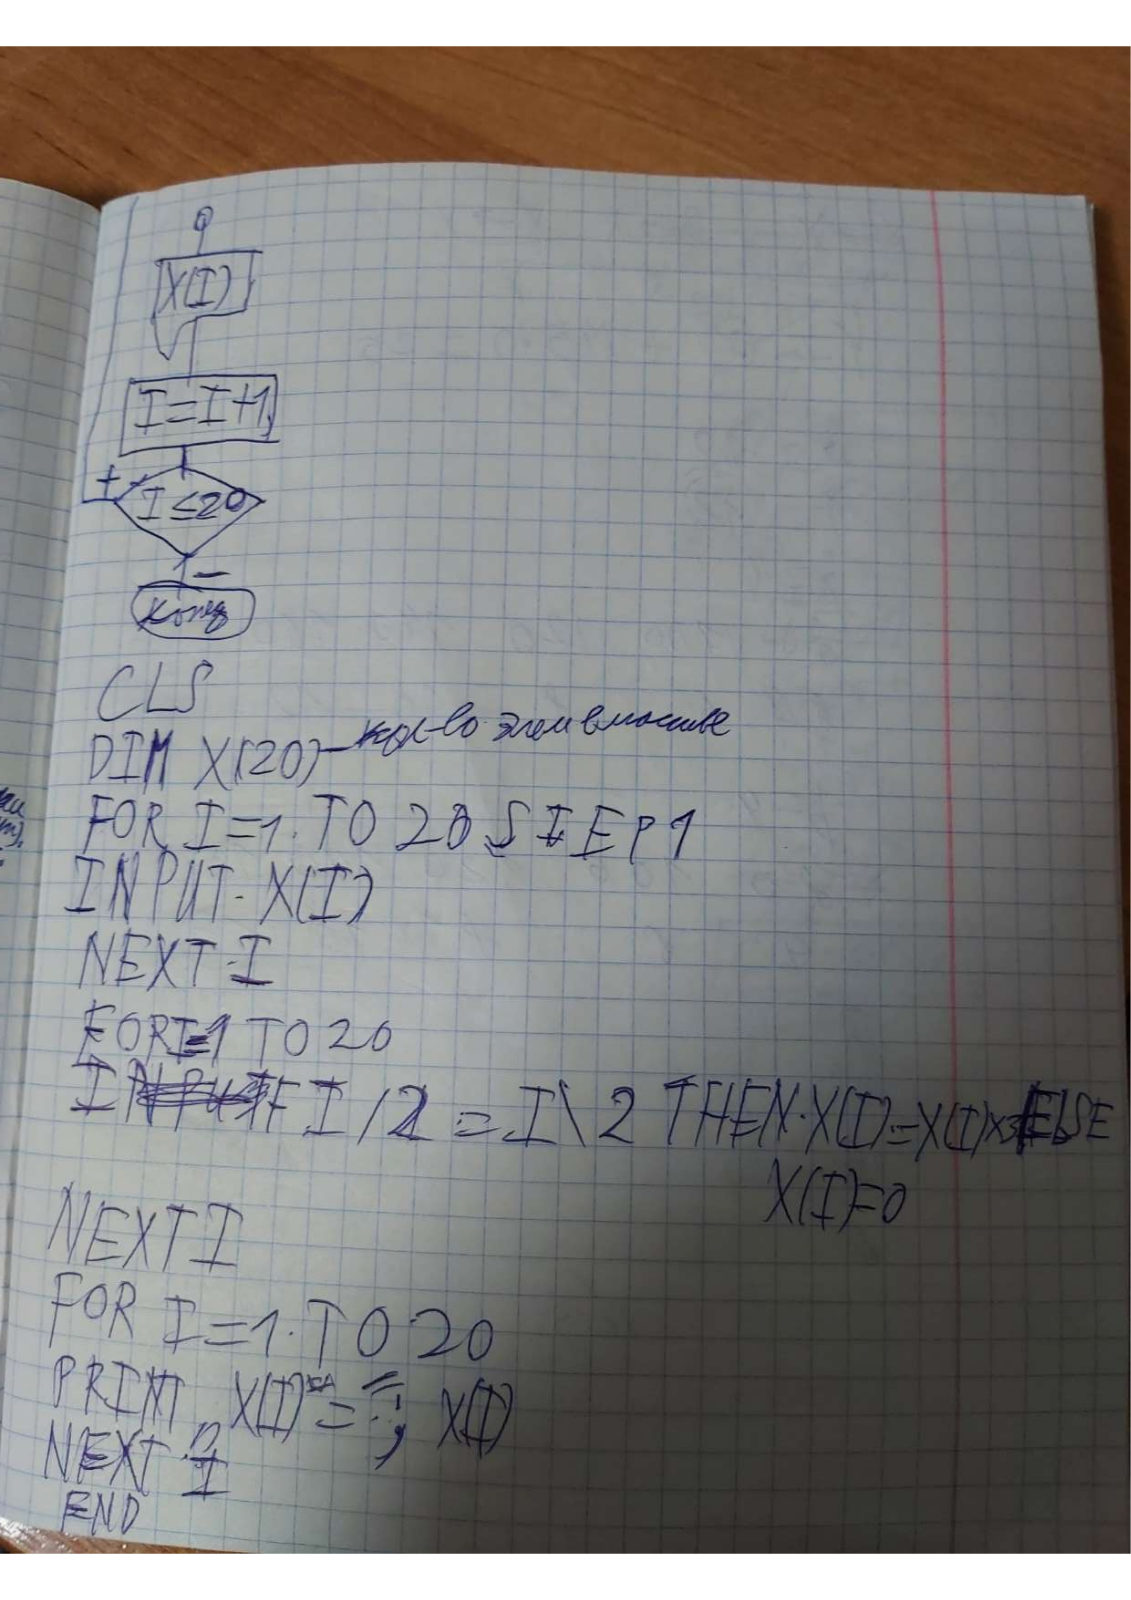 X(I)
I=I+1
+
I≤20
-
конец
CLS
DIM X(20) - кол-во элем в массиве
FOR I=1 TO 20 STEP 1
INPUT X(I)
NEXT I
FOR I=1 TO 20
IF I/2=I\2 THEN X(I)=X(I)×3 ELSE
X(I)=0
NEXT I
FOR I=1 TO 20
PRINT "X(I)="; X(I)
NEXT I
END